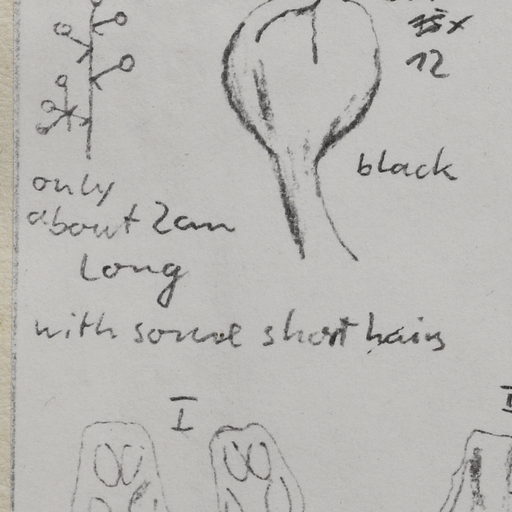 12
black
only
about 2cm
long
with some short hairs
I